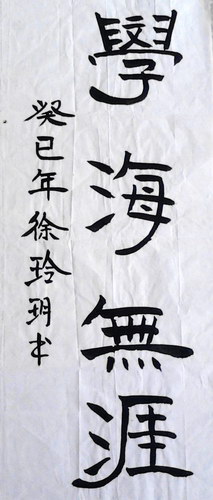 學海無涯
癸巳年徐玲玥书